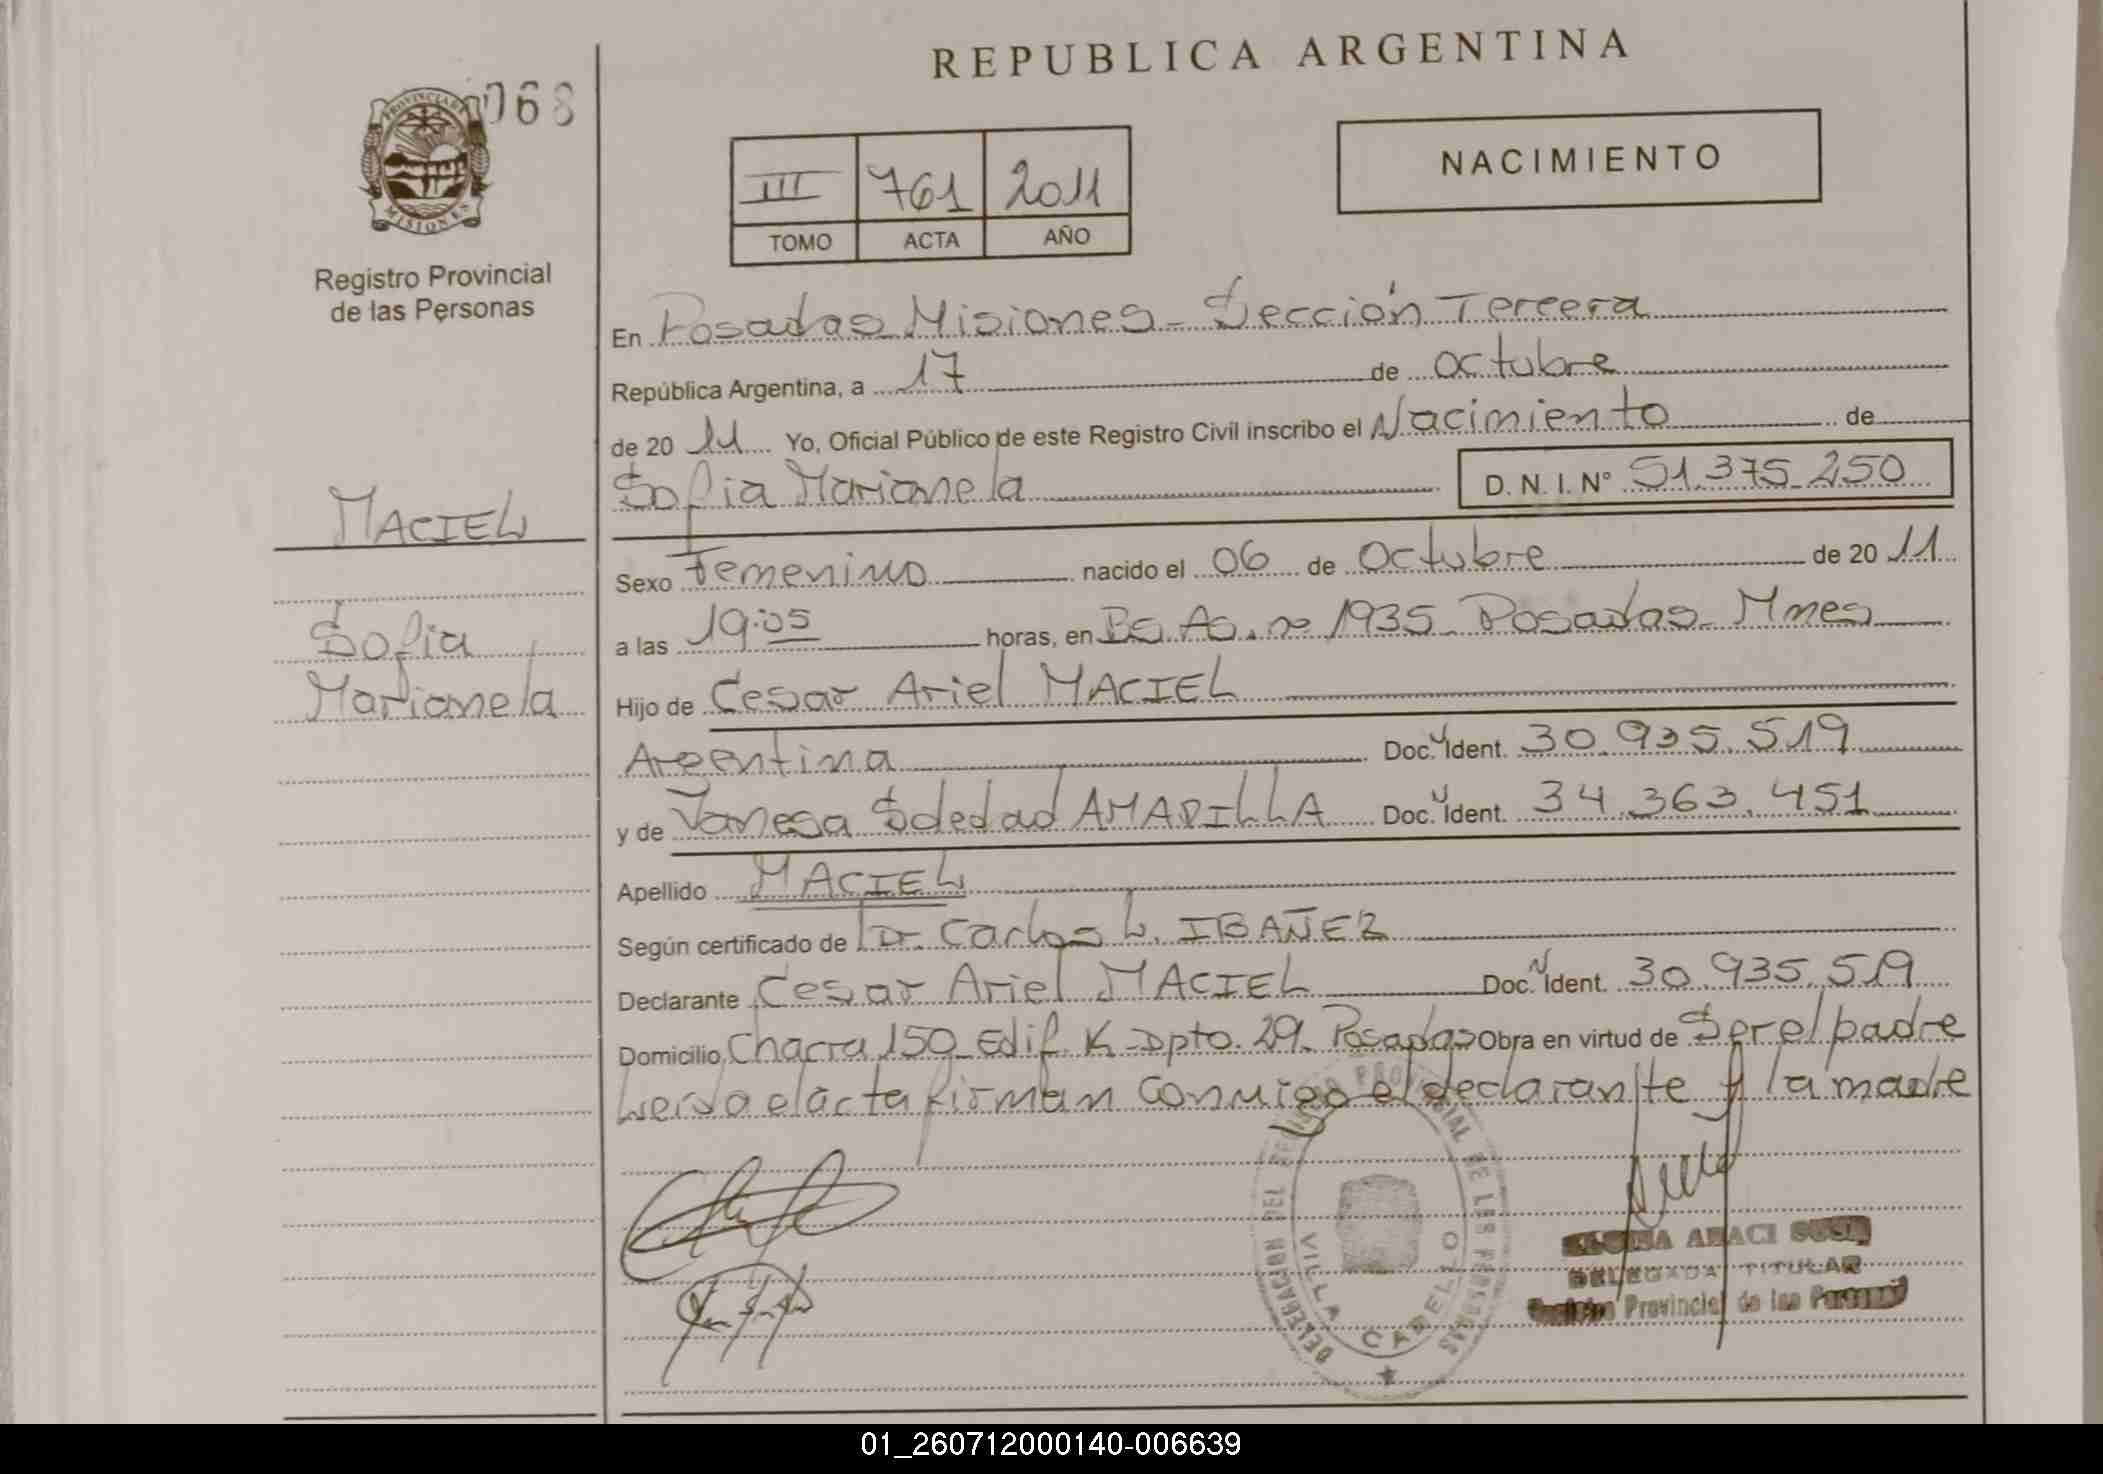 REPUBLICA ARGENTINA
068
PROVINCIA DE MISIONES
Registro Provincial
de las Personas
III 761 2011
TOMO ACTA AÑO
NACIMIENTO
En Posadas Misiones - Sección Tercera
República Argentina, a 17 de octubre
de 20 11 Yo, Oficial Público de este Registro Civil inscribo el Nacimiento de
Sofia Marianela D. N. I. Nº 51.375.250
MACIEL
Sofia
Marianela
Sexo Femenino nacido el 06 de Octubre de 20 11
a las 19:05 horas, en Bs. As. nº 1935 - Posadas - Mnes
Hijo de Cesar Ariel MACIEL
Argentina Doc. y Ident. 30.935.519
y de Vanesa Soledad AMARILLA Doc. y Ident. 34.363.451
Apellido MACIEL
Según certificado de Dr. Carlos L. IBAÑEZ
Declarante Cesar Ariel MACIEL Doc. Ident. 30.935.519
Domicilio Chacra 150 - Edif. K - Dpto. 29. Posadas Obra en virtud de Ser el padre
Leida el acta firman conmigo el declarante y la madre
DELEGACION DEL REGISTRO PROVINCIAL DE LAS PERSONAS
VILLA CABELLO
ARACI SOSA
DELEGADA TITULAR
Registro Provincial de las Personas
01_260712000140-006639